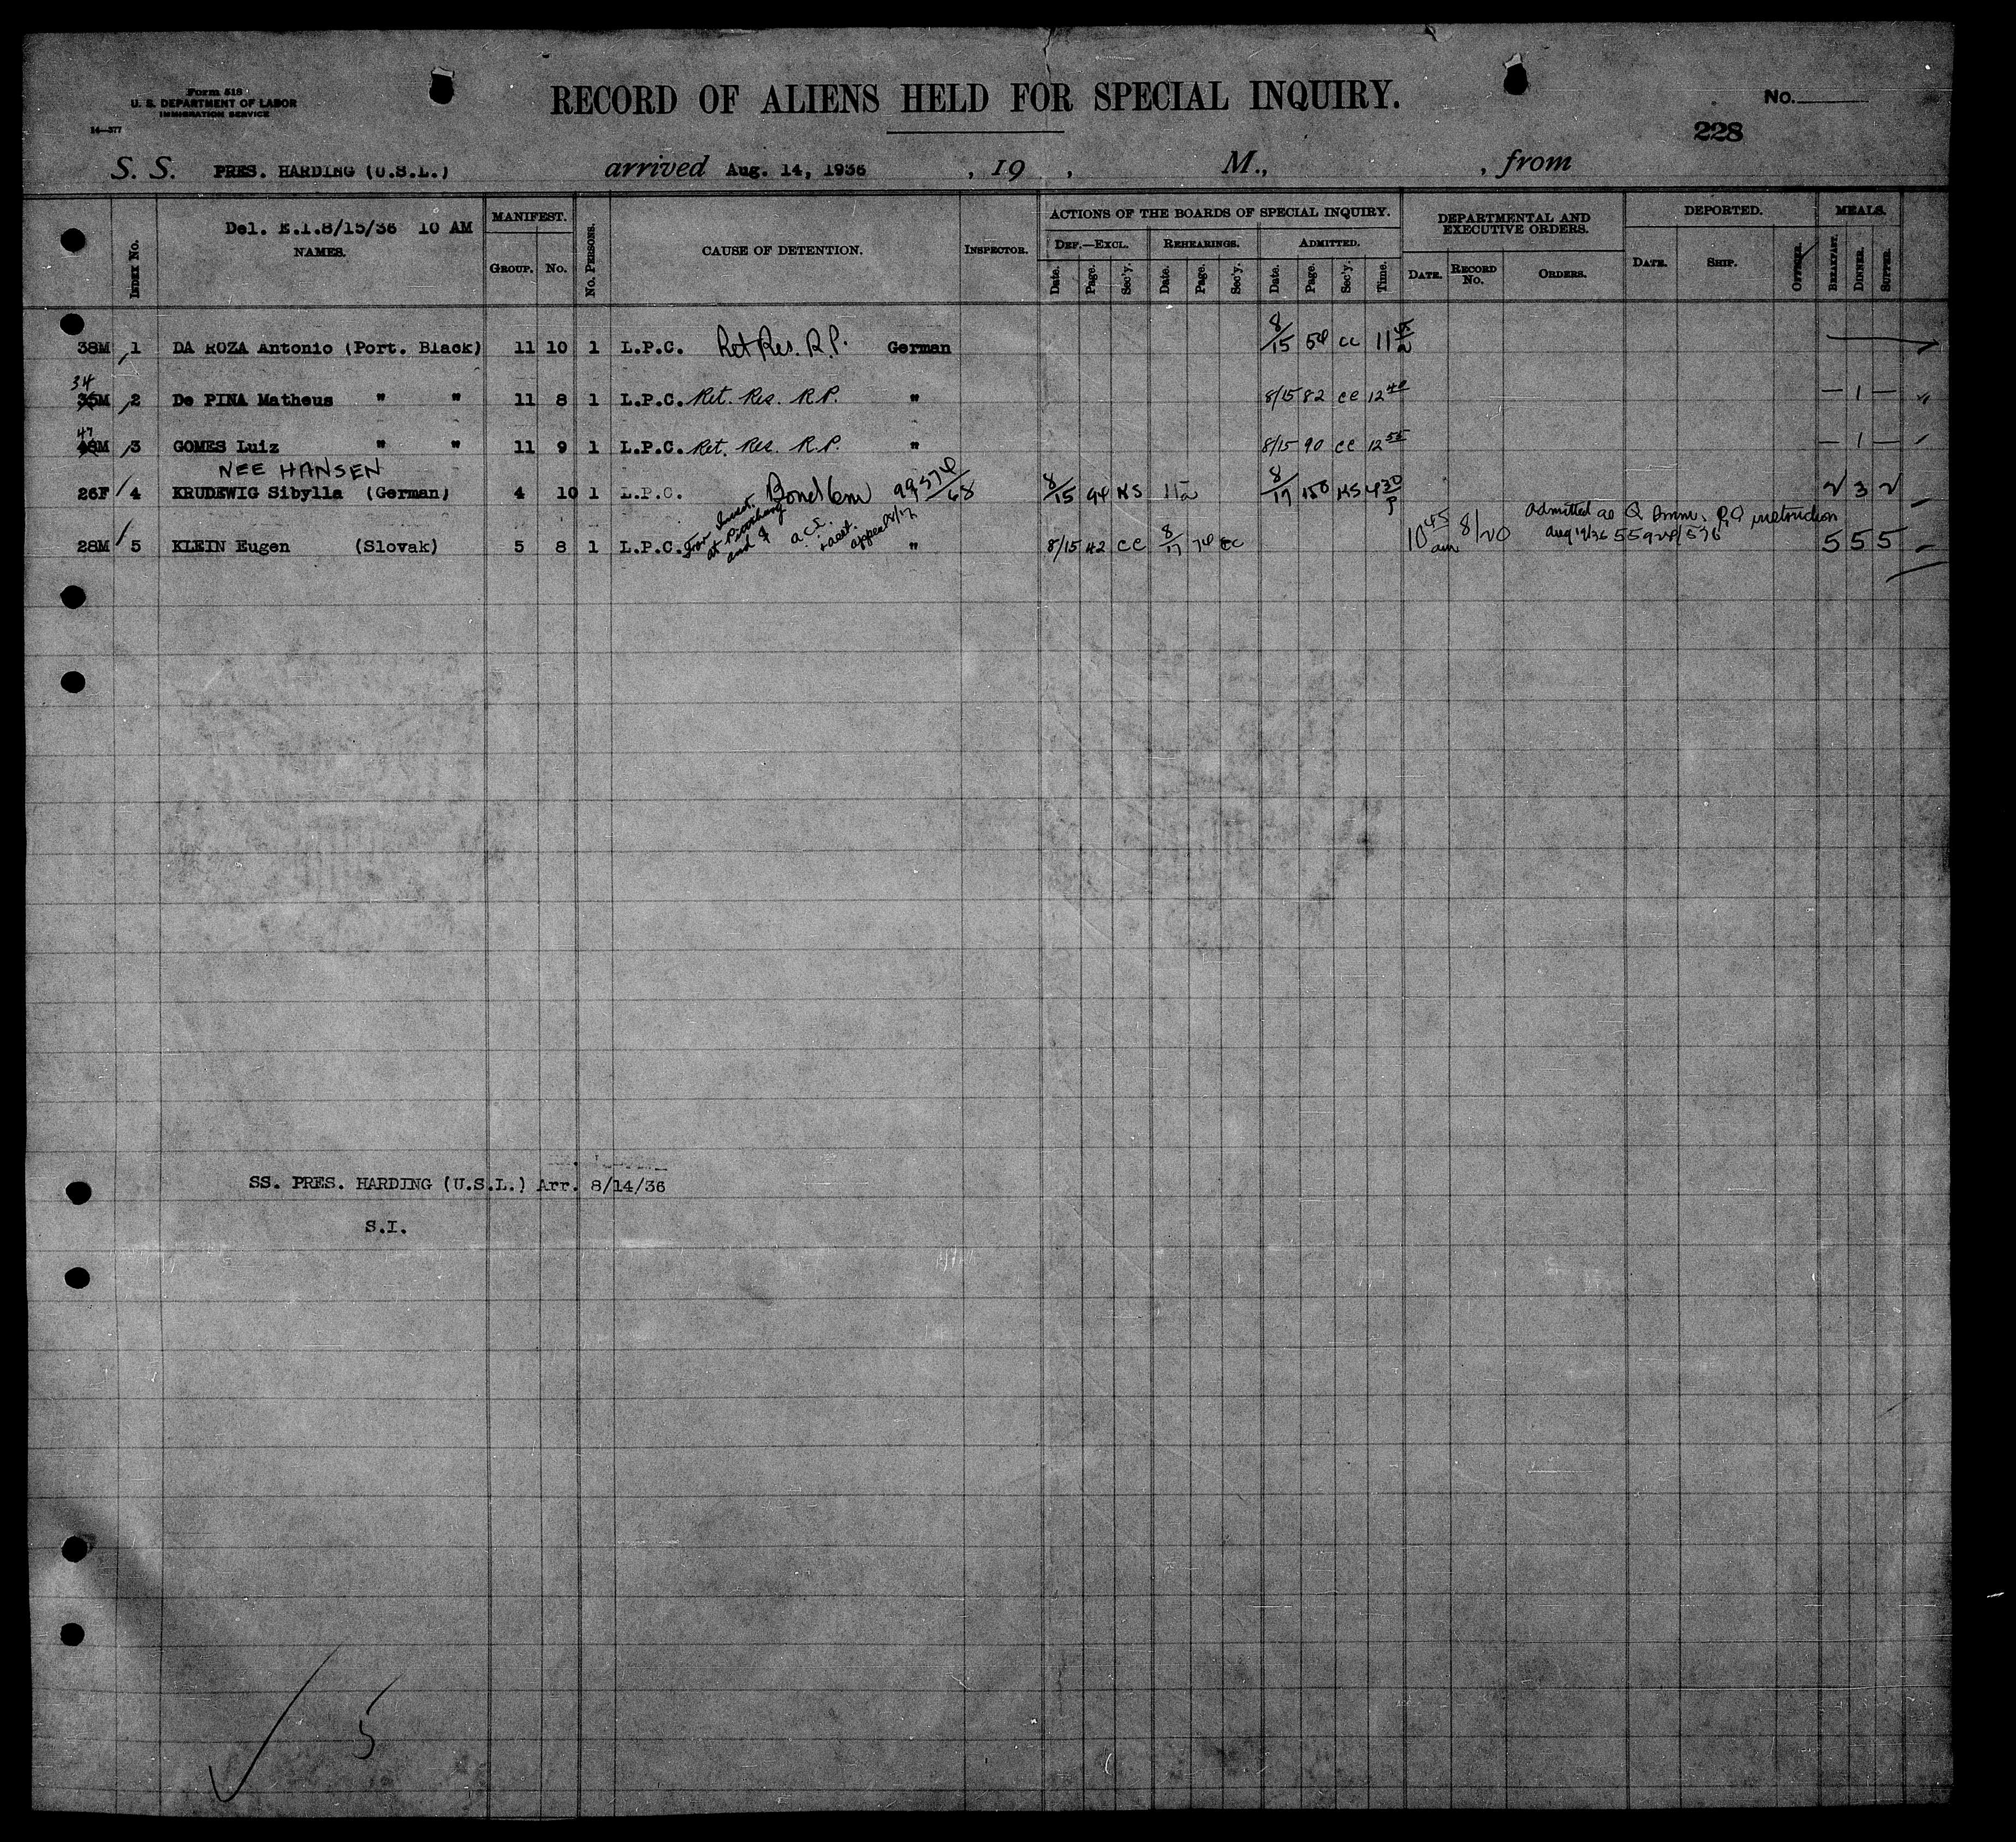 Form 518
U. S. DEPARTMENT OF LABOR
IMMIGRATION SERVICE
14—377
RECORD OF ALIENS HELD FOR SPECIAL INQUIRY.
No.
228
S. S. PRES. HARDING (U.S.L.) arrived Aug. 14, 1936 , 19 , M., , from
Del. E.I. 8/15/36 10 AM
INDEX No. NAMES. MANIFEST. GROUP. No. No. PERSONS. CAUSE OF DETENTION. INSPECTOR. ACTIONS OF THE BOARDS OF SPECIAL INQUIRY. DEF.—EXCL. Date. Page. Sec'y. REHEARINGS. Date. Page. Sec'y. ADMITTED. Date. Page. Sec'y. Time. DEPARTMENTAL AND EXECUTIVE ORDERS. DATE. RECORD No. ORDERS. DEPORTED. DATE. SHIP. OFFICER. MEALS. BREAKFAST. DINNER. SUPPER.
38M 1 DA ROZA Antonio (Port. Black) 11 10 1 L.P.C. Ret Res. R.P. German 8/15 54 cc 11 45 a
34
35M 2 De PINA Matheus " " 11 8 1 L.P.C. Ret. Res. R.P. " 8/15 82 cc 12 40 — 1 —
47
48M 3 GOMES Luiz " " 11 9 1 L.P.C. Ret. Res. R.P. " 8/15 90 cc 12 55 — 1 —
NEE HANSEN
26F 4 KRUDEWIG Sibylla (German) 4 10 1 L.P.C. Bond 6m 99574/68 8/15 94 KS 8/17 150 KS 4 30 p 2 3 2
28M 5 KLEIN Eugen (Slovak) 5 8 1 L.P.C. For Invest. at Pittsburg and appeal 8/17 " 8/15 42 CC 8/17 74 cc 10 45 am 8/20 admitted as Q Imm. instruction Aug 19/36 5 5 5
SS. PRES. HARDING (U.S.L.) Arr. 8/14/36
S.I.
5